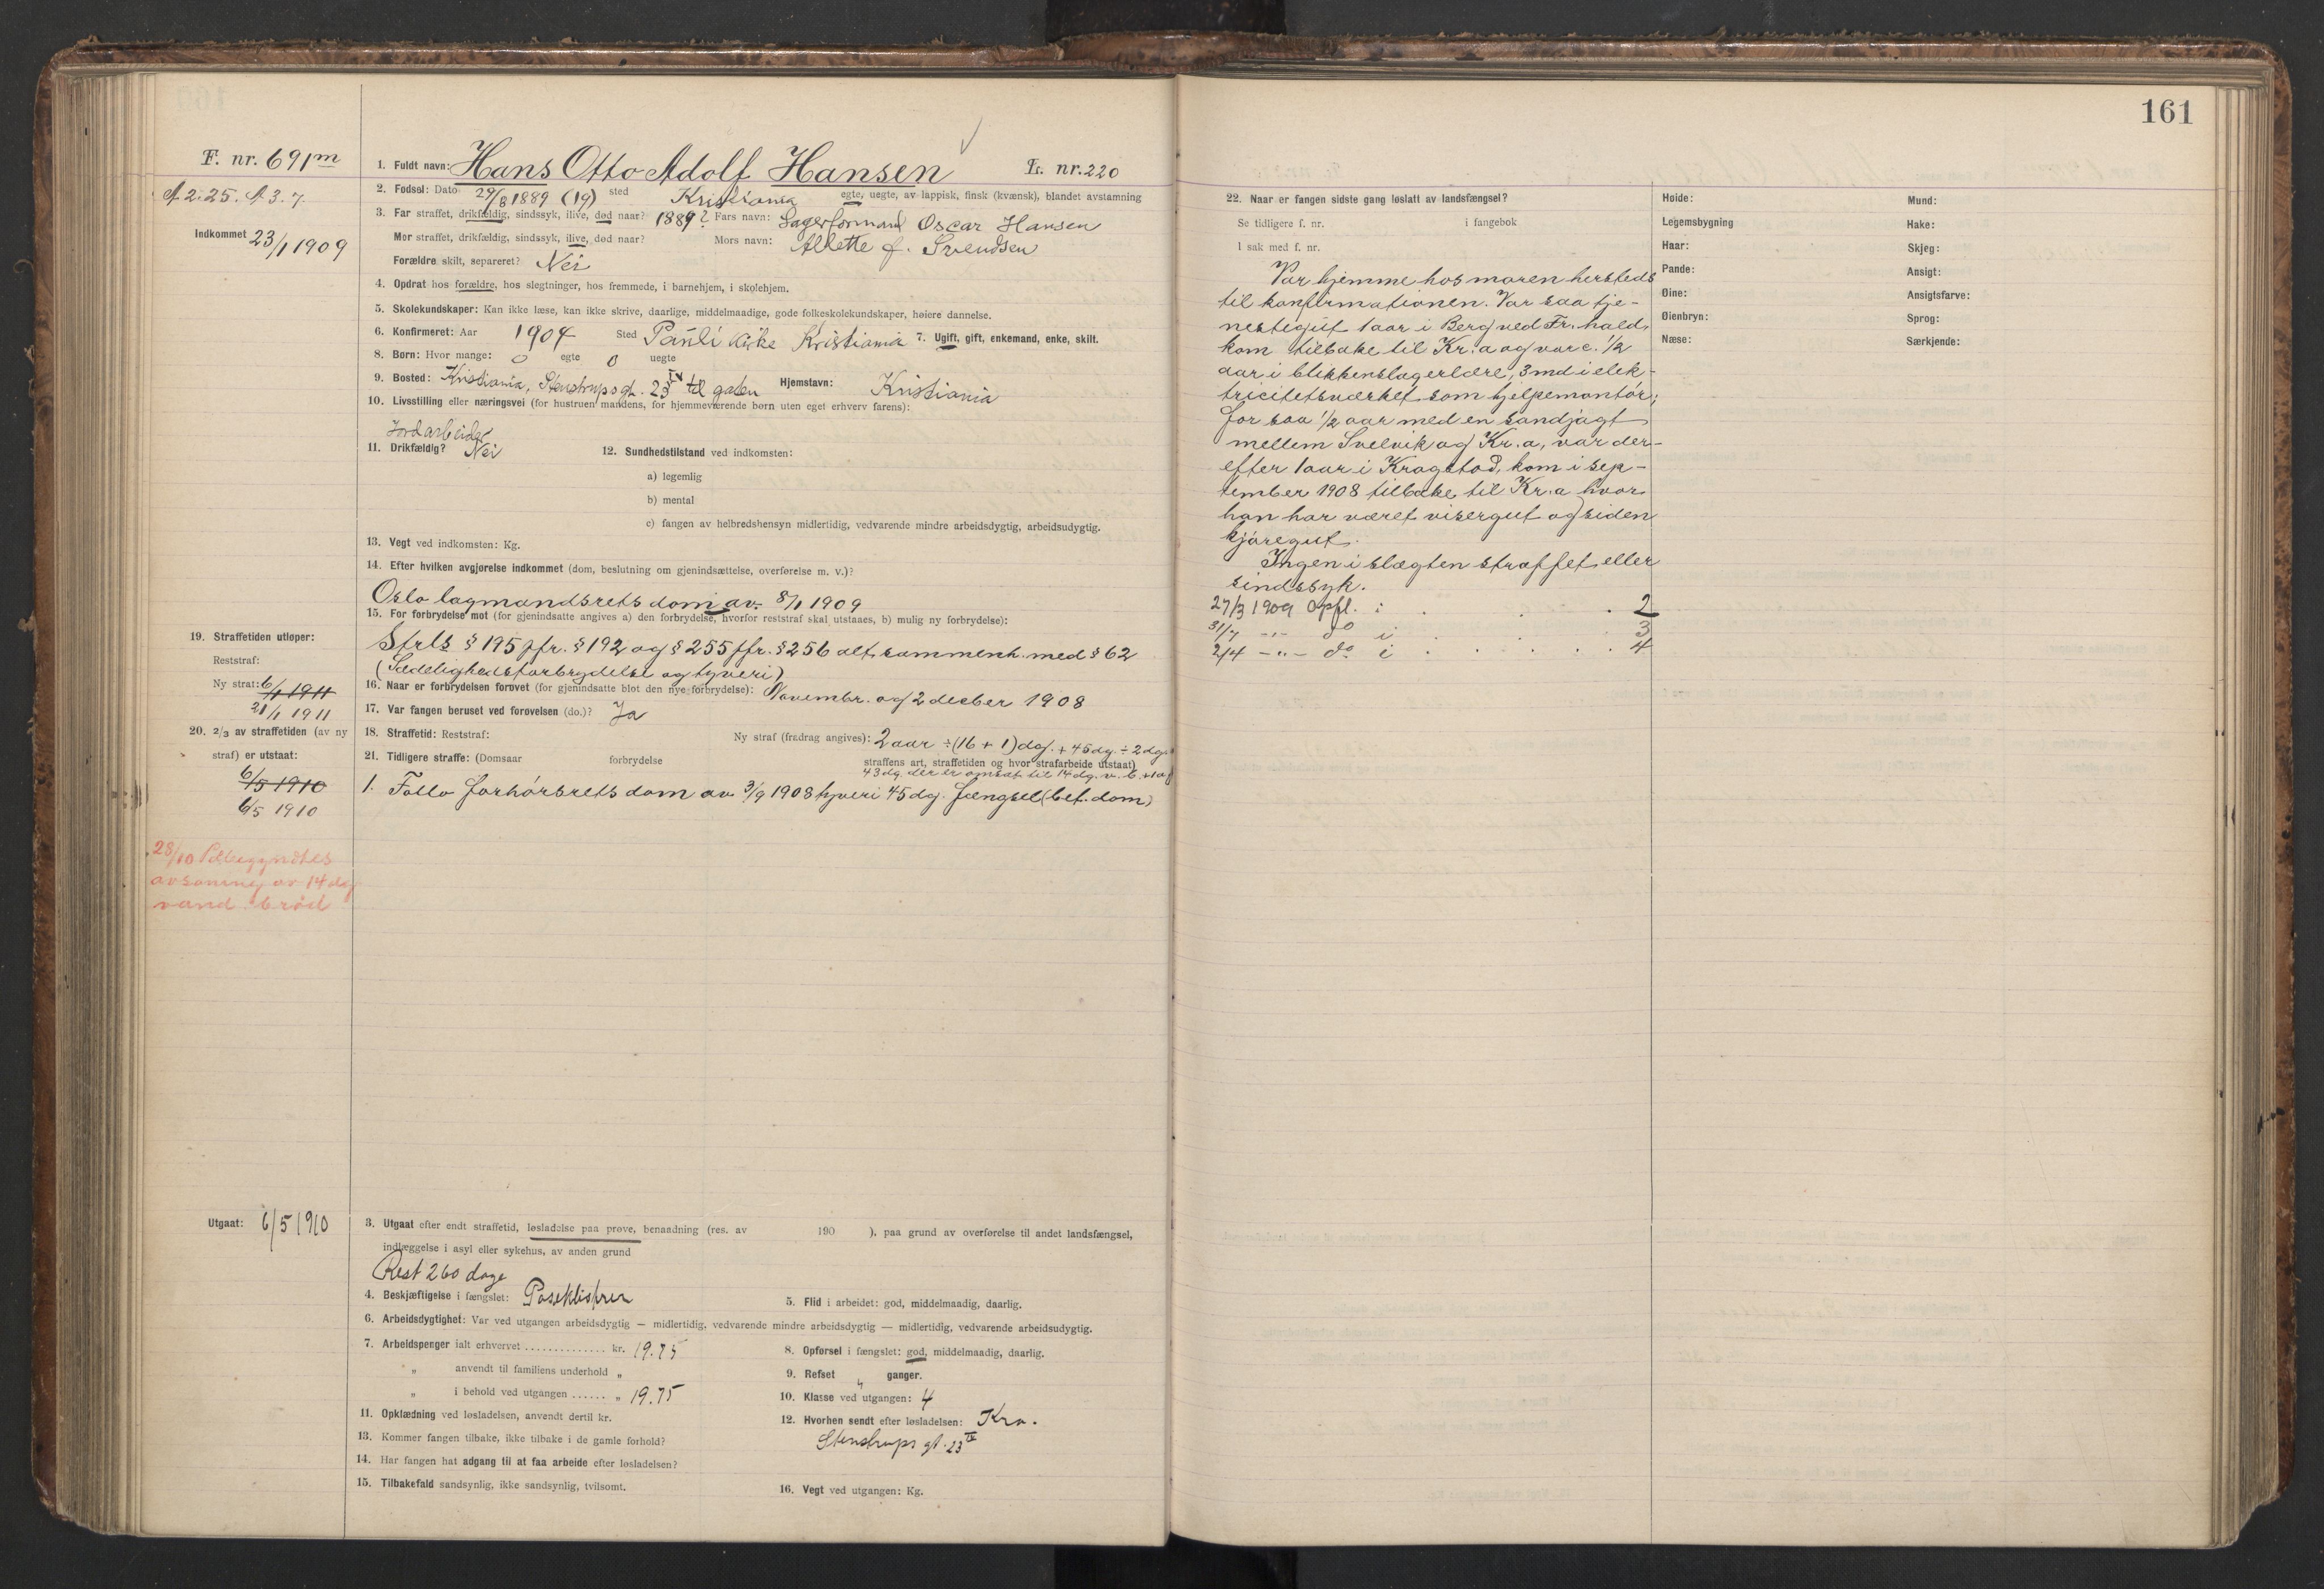 161
F. nr. 691m
A. 2. 25. A 3. 7.
Indkommet 23/1 1909
1. Fuldt navn: Hans Otto Adolf Hansen L. nr. 220
2. Fødsel: Dato 29/8 1889 (19) sted Kristiania egte, uegte, av lappisk, finsk (kvænsk), blandet avstamning
3. Far straffet, drikfældig, sindssyk, ilive, død naar? 1889? Fars navn: Lagerformand Oscar Hansen
Mor straffet, drikfældig, sindssyk, ilive, død naar? Mors navn: Albette f. Svendsen
Forældre skilt, separeret? Nei
4. Opdrat hos forældre, hos slegtninger, hos fremmede, i barnehjem, i skolehjem.
5. Skolekundskaper: Kan ikke læse, kan ikke skrive, daarlige, middelmaadige, gode folkeskolekundskaper, høiere dannelse.
6. Konfirmeret: Aar 1904 Sted Pauli Kirke Kristiania 7. Ugift, gift, enkemand, enke, skilt.
8. Børn: Hvor mange: 0 egte 0 uegte
9. Bosted: Kristiania, Stenstrupsgt. 23 IV til gaten Hjemstavn: Kristiania
10. Livsstilling eller næringsvei (for hustruen mandens, for hjemmeværende børn uten eget erhverv farens):
Jordarbeider
11. Drikfældig? Nei 12. Sundhedstilstand ved indkomsten:
a) legemlig
b) mental
c) fangen av helbredshensyn midlertidig, vedvarende mindre arbeidsdygtig, arbeidsudygtig.
13. Vegt ved indkomsten: Kg.
14. Efter hvilken avgjørelse indkommet (dom, beslutning om gjenindsættelse, overførelse m. v.)?
Oslo lagmandsrets dom av 8/1 1909
15. For forbrydelse mot (for gjenindsatte angives a) den forbrydelse, hvorfor reststraf skal utstaaes, b) mulig ny forbrydelse):
Strls § 195 jfr. § 192 og § 255 jfr. § 256 alt sammenh. med § 62
(Sædelighedsforbrydelse og tyveri)
16. Naar er forbrydelsen forøvet (for gjenindsatte blot den nye forbrydelse): Novembr. og 2 decber 1908
17. Var fangen beruset ved forøvelsen (do.)? Ja
18. Straffetid: Reststraf: Ny straf (fradrag angives): 2 aar ÷ (16 + 1) dg. + 45 dg. ÷ 2 dg.
21. Tidligere straffe: (Domsaar forbrydelse straffens art, straffetiden og hvor strafarbeide utstaat)
43 dg. der er omsat til 14 dg. v. b. + 1 dg
1. Follo forhørsrets dom av 3/9 1908 tyveri 45 dg. fængsel (bet. dom)
19. Straffetiden utløper:
Reststraf:
Ny straf: 6/1 1911
21/1 1911
20. 2/3 av straffetiden (av ny
straf) er utstaat:
6/5 1910
6/5 1910
28/10 Paabegyndtes
avsoning av 14 dg
vand. brød
Utgaat: 6/5 1910
3. Utgaat efter endt straffetid, løsladelse paa prøve, benaadning (res. av 190 ), paa grund av overførelse til andet landsfængsel,
indlæggelse i asyl eller sykehus, av anden grund
Rest 260 dage
4. Beskjæftigelse i fængslet: Poseklistrer 5. Flid i arbeidet: god, middelmaadig, daarlig.
6. Arbeidsdygtighet: Var ved utgangen arbeidsdygtig — midlertidig, vedvarende mindre arbeidsdygtig — midlertidig, vedvarende arbeidsudygtig.
7. Arbeidspenger ialt erhvervet .............. kr. 19.75 8. Opførsel i fængslet: god, middelmaadig, daarlig.
„ anvendt til familiens underhold „ 9. Refset „ ganger.
„ i behold ved utgangen ...... „ 19.75 10. Klasse ved utgangen: 4
11. Opklædning ved løsladelsen, anvendt dertil kr. 12. Hvorhen sendt efter løsladelsen: Kra.
13. Kommer fangen tilbake, ikke tilbake i de gamle forhold? Stenstrups gt. 23 IV
14. Har fangen hat adgang til at faa arbeide efter løsladelsen?
15. Tilbakefald sandsynlig, ikke sandsynlig, tvilsomt. 16. Vegt ved utgangen: Kg.
22. Naar er fangen sidste gang løslatt av landsfængsel?
Se tidligere f. nr. i fangebok
I sak med f. nr.
Var hjemme hos moren hersteds
til konfirmationen. Var saa tje-
nestegut 1 aar i Berg ved Fr.hald,
kom tilbake til Kr.a og var c. 1/2
aar i blikkenslagerlære, 3 md i elek-
tricitetsværket som hjelpemontør;
for saa 1/2 aar med en sandjagt
mellem Svelvik og Kr.a, var der-
efter 1 aar i Kragstad, kom i sep-
tember 1908 tilbake til Kr.a hvor
han har været visergut og siden
kjøregut.
Ingen i slægten straffet eller
sindssyk.
27/3 1909 Opfl. i . . . 2
31/7 -„- do i . . . 3
2/4 -„- do i . . . 4
Høide: Mund:
Legemsbygning Hake:
Haar: Skjeg:
Pande: Ansigt:
Øine: Ansigtsfarve:
Øienbryn: Sprog:
Næse: Særkjende: